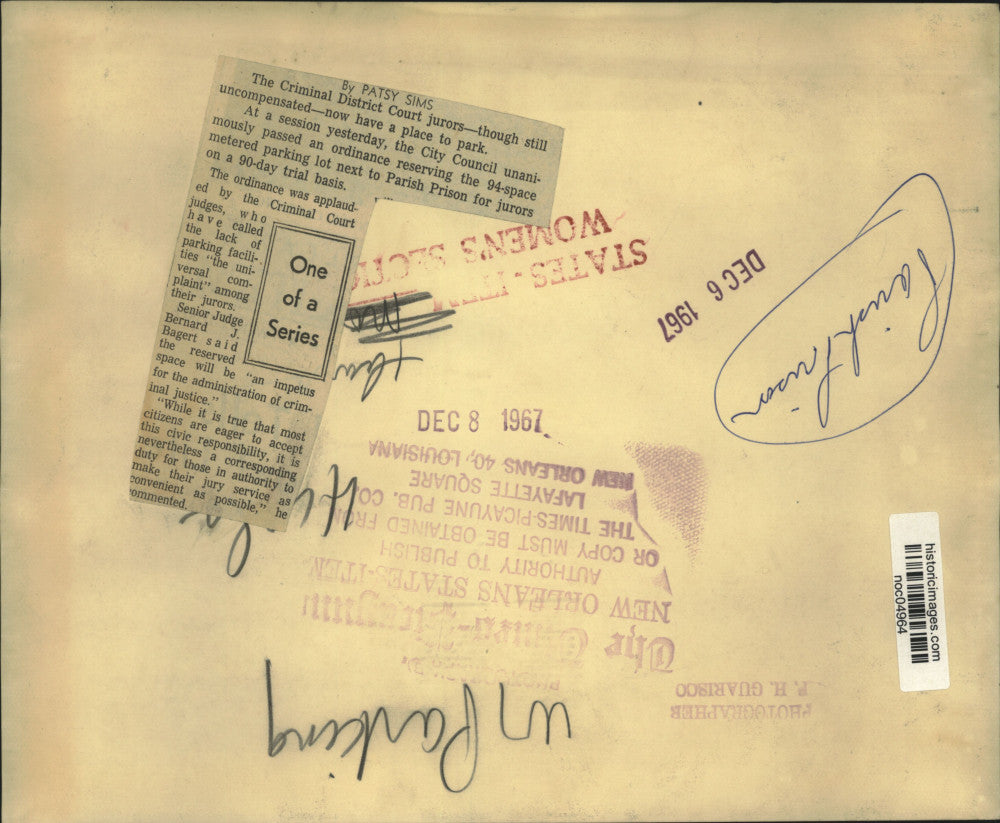 By PATSY SIMS
The Criminal District Court jurors—though still
uncompensated—now have a place to park.
At a session yesterday, the City Council unani-
mously passed an ordinance reserving the 94-space
metered parking lot next to Parish Prison for jurors
on a 90-day trial basis.
The ordinance was applaud-
ed by the Criminal Court
judges, who
have called
the lack of
parking facili-
ties "the uni-
versal com-
plaint" among
their jurors.
Senior Judge
Bernard J.
Bagert said
the reserved
space will be "an impetus
for the administration of crim-
inal justice."
"While it is true that most
citizens are eager to accept
this civic responsibility, it is
nevertheless a corresponding
duty for those in authority to
make their jury service as
convenient as possible," he
commented.
One
of a
Series
STATES-ITEM
WOMEN'S
DEC 6 1967
Parish Prison
DEC 8 1967
PHOTOGRAPHER
P. H. GUARISCO
The Times-Picayune
NEW ORLEANS STATES-ITEM
AUTHORITY TO PUBLISH
OR COPY MUST BE OBTAINED FROM
THE TIMES-PICAYUNE PUB. CO
LAFAYETTE SQUARE
NEW ORLEANS 40, LOUISIANA
Parking
historicimages.com
noc04964